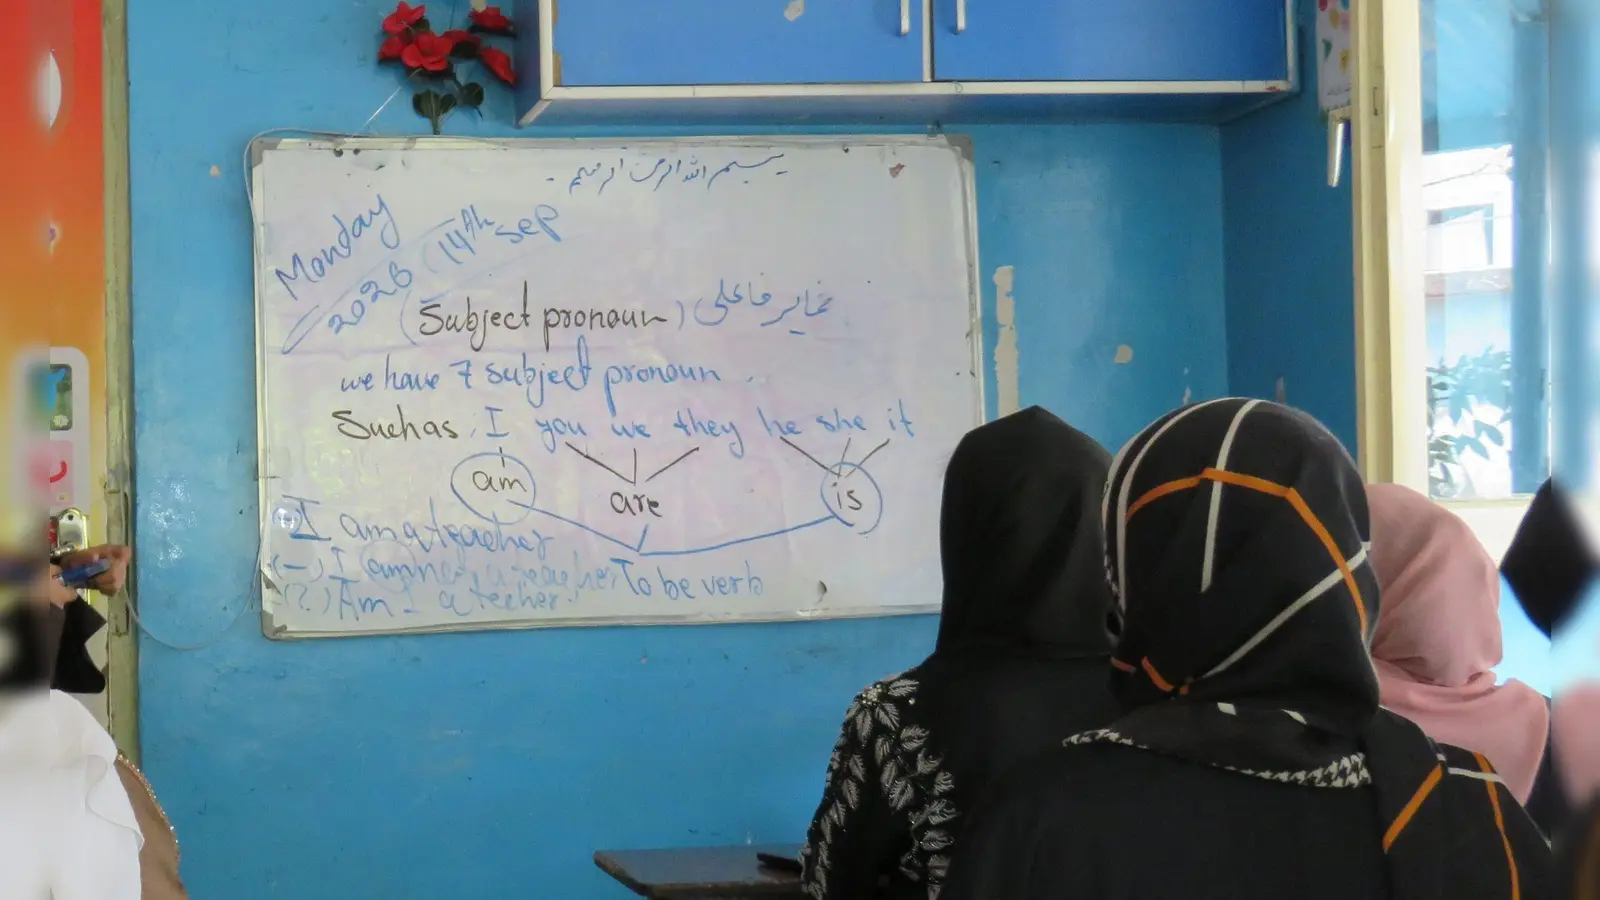 بسم الله الرحمن الرحیم
Monday 14th sep
2026
(Subject pronoun) ضمایر فاعلی
we have 7 subject pronoun .
Such as, I you we they he she it
am are is
I am a teacher
(-) I am not a teacher To be verb
(?) Am I a techer?